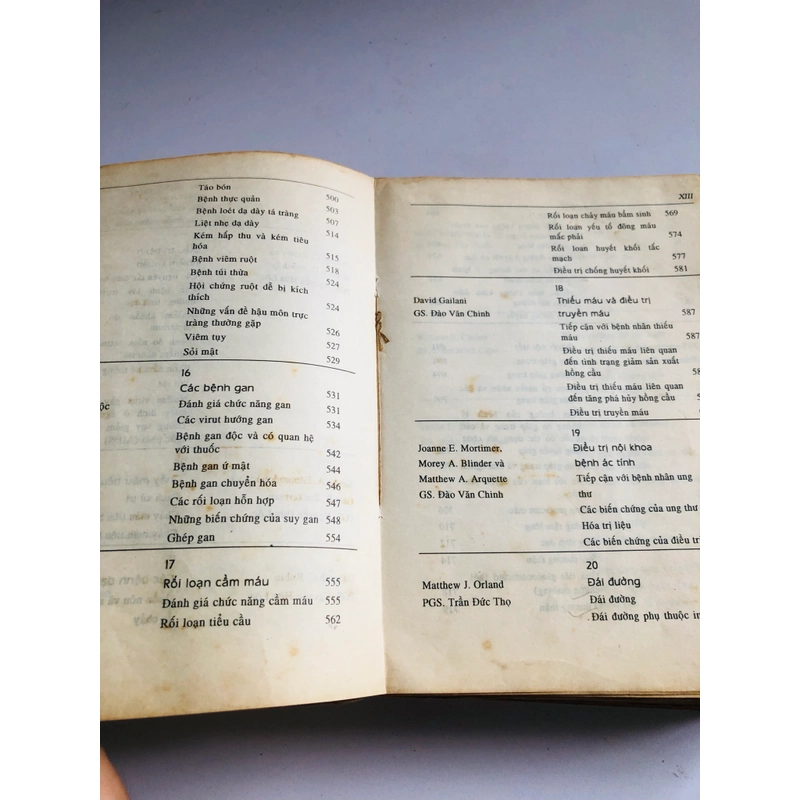 Táo bón
Bệnh thực quản 500
Bệnh loét dạ dày tá tràng 503
Liệt nhẹ dạ dày 507
Kém hấp thu và kém tiêu 514
hóa
Bệnh viêm ruột 515
Bệnh túi thừa 518
Hội chứng ruột dễ bị kích 524
thích
Những vấn đề hậu môn trực 524
tràng thường gặp
Viêm tụy 526
Sỏi mật 527
529
16
Các bệnh gan 531
Đánh giá chức năng gan 531
Các virut hướng gan 534
Bệnh gan độc và có quan hệ
với thuốc 542
Bệnh gan ứ mật 544
Bệnh gan chuyển hóa 546
Các rối loạn hỗn hợp 547
Những biến chứng của suy gan 548
Ghép gan 554
17
Rối loạn cầm máu 555
Đánh giá chức năng cầm máu 555
Rối loạn tiểu cầu 562
XIII
Rối loạn chảy máu bẩm sinh 569
Rối loạn yếu tố đông máu
mắc phải 574
Rối loạn huyết khối tắc
mạch 577
Điều trị chống huyết khối 581
18
David Gailani Thiếu máu và điều trị
GS. Đào Văn Chinh truyền máu 587
Tiếp cận với bệnh nhân thiếu
máu 587
Điều trị thiếu máu liên quan
đến tình trạng giảm sản xuất
hồng cầu
Điều trị thiếu máu liên quan
đến tăng phá hủy hồng cầu
Điều trị truyền máu
19
Joanne E. Mortimer, Điều trị nội khoa
Morey A. Blinder và bệnh ác tính
Matthew A. Arquette Tiếp cận với bệnh nhân ung
GS. Đào Văn Chinh thư
Các biến chứng của ung thư
Hóa trị liệu
Các biến chứng của điều trị
20
Matthew J. Orland Đái đường
PGS. Trần Đức Thọ Đái đường
Đái đường phụ thuộc in